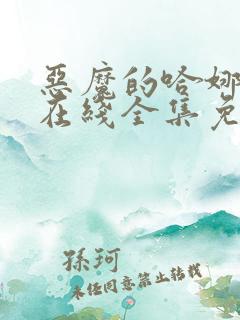 惡魔的哈娜
在綫全集免
孫珂
未经同意禁止转载